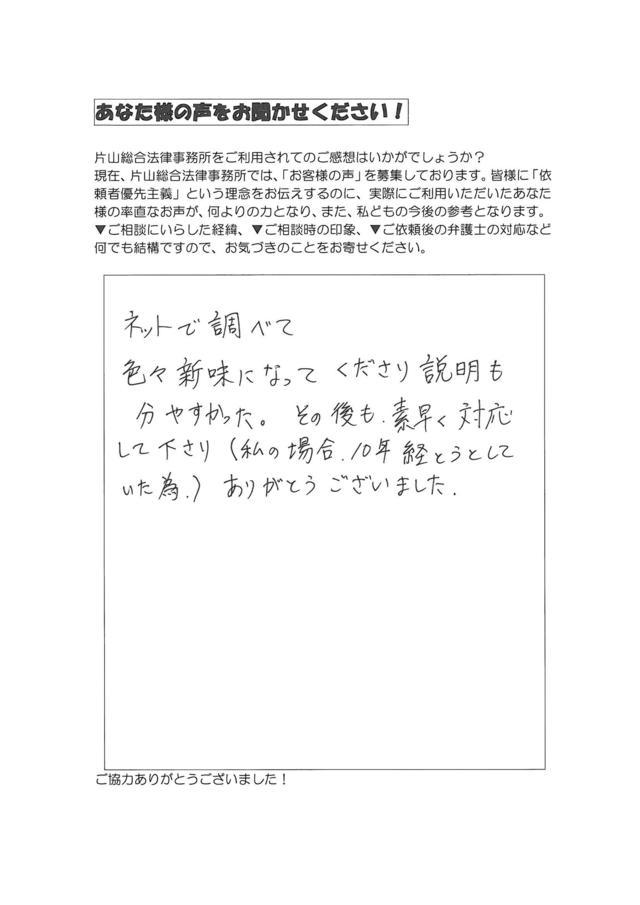 あなた様の声をお聞かせください!
片山総合法律事務所をご利用されてのご感想はいかがでしょうか?
現在、片山総合法律事務所では、「お客様の声」を募集しております。皆様に「依
頼者優先主義」という理念をお伝えするのに、実際にご利用いただいたあなた
様の率直なお声が、何よりの力となり、また、私どもの今後の参考となります。
▼ご相談にいらした経緯、▼ご相談時の印象、▼ご依頼後の弁護士の対応など
何でも結構ですので、お気づきのことをお寄せください。
ネットで調べて
色々新味になってくださり説明も
分やすかった。その後も、素早く対応
して下さり(私の場合、10年経とうとして
いた為、)ありがとうございました.
ご協力ありがとうございました!